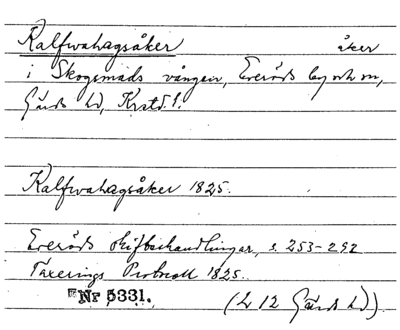 Kalfwahagsåker åker
i Skogsmads vången, Everöds by och sn,
Gärds hd, Krstd. l.
Kalfwahagsåker 1825.
Everöds skifteshandlingar, s. 253-292
Taxerings Protocoll 1825.
Nr 5331. (L 12 Gärds hd).